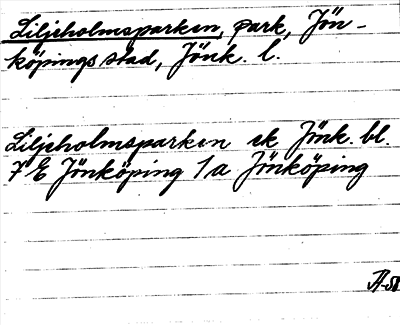 Liljeholmsparken, park, Jön-
köpings stad, Jönk. l.
Liljeholmsparken ek Jönk. bl.
7 E Jönköping 1 a Jönköping